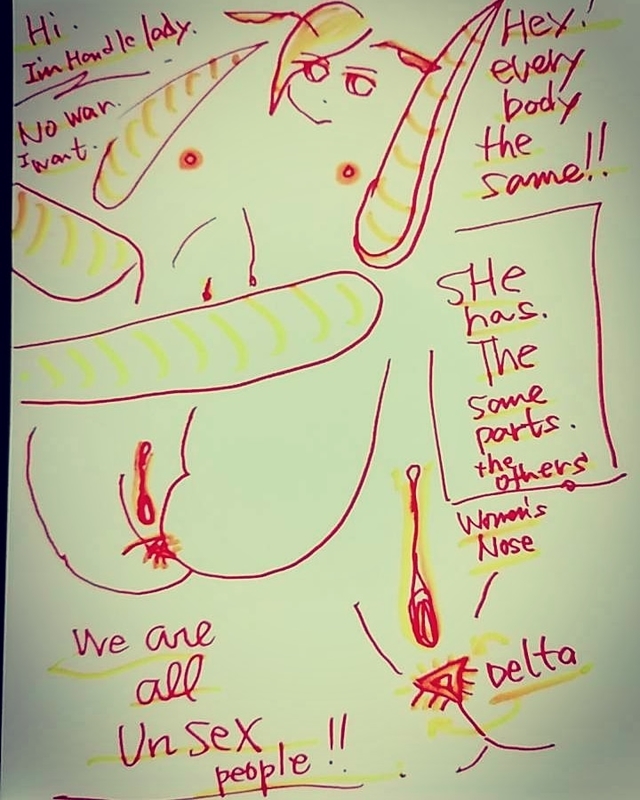 Hi.
I'm Handle lady.
No war.
I want.
Hey!
every
body
the
same!!
SHe
has.
The
same
parts.
the
others
Women's
Nose
Delta
We are
all
Un sex
people!!